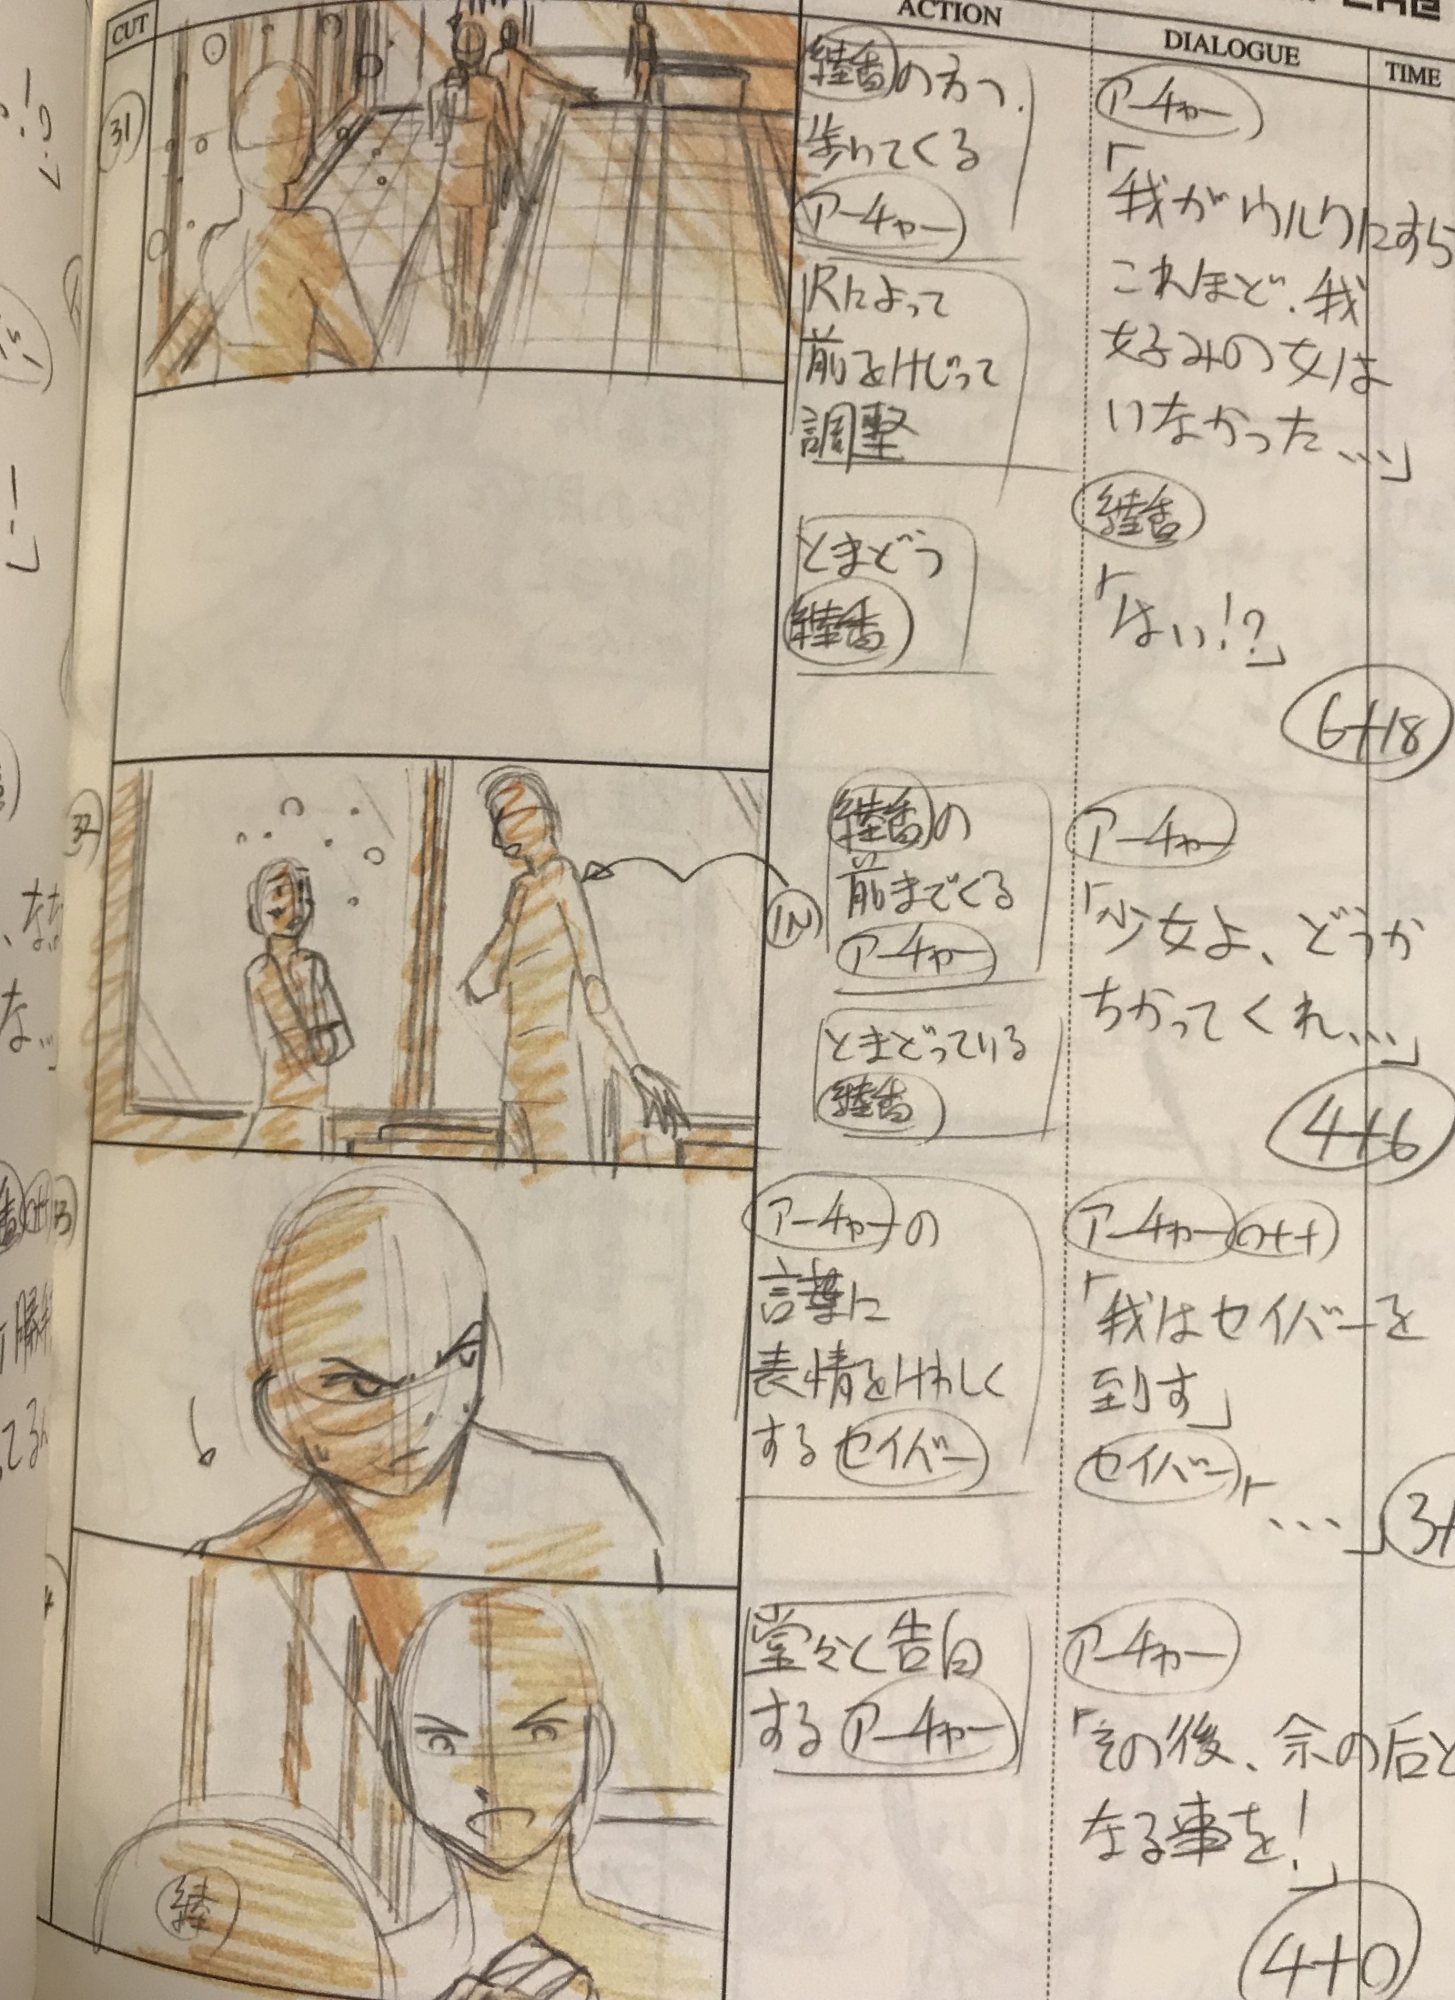 CUT
ACTION
DIALOGUE
TIME
31
綾香の方へ
歩いてくる
アーチャー
尺によって
前をけずって
調整
とまどう
綾香
アーチャー
「我がウルクにすら
これほど、我
好みの女は
いなかった…」
綾香
「はい!?」
6+18
32
IN
綾香の
前までくる
アーチャー
とまどっている
綾香
アーチャー
「少女よ、どうか
ちかってくれ…」
4+6
アーチャーの
言葉に
表情をけわしく
する セイバー
アーチャー off
「我はセイバーを
到す」
セイバー「…」
3+
堂々と告白
する アーチャー
アーチャー
「その後、余の后と
なる事を!」
4+0
綾